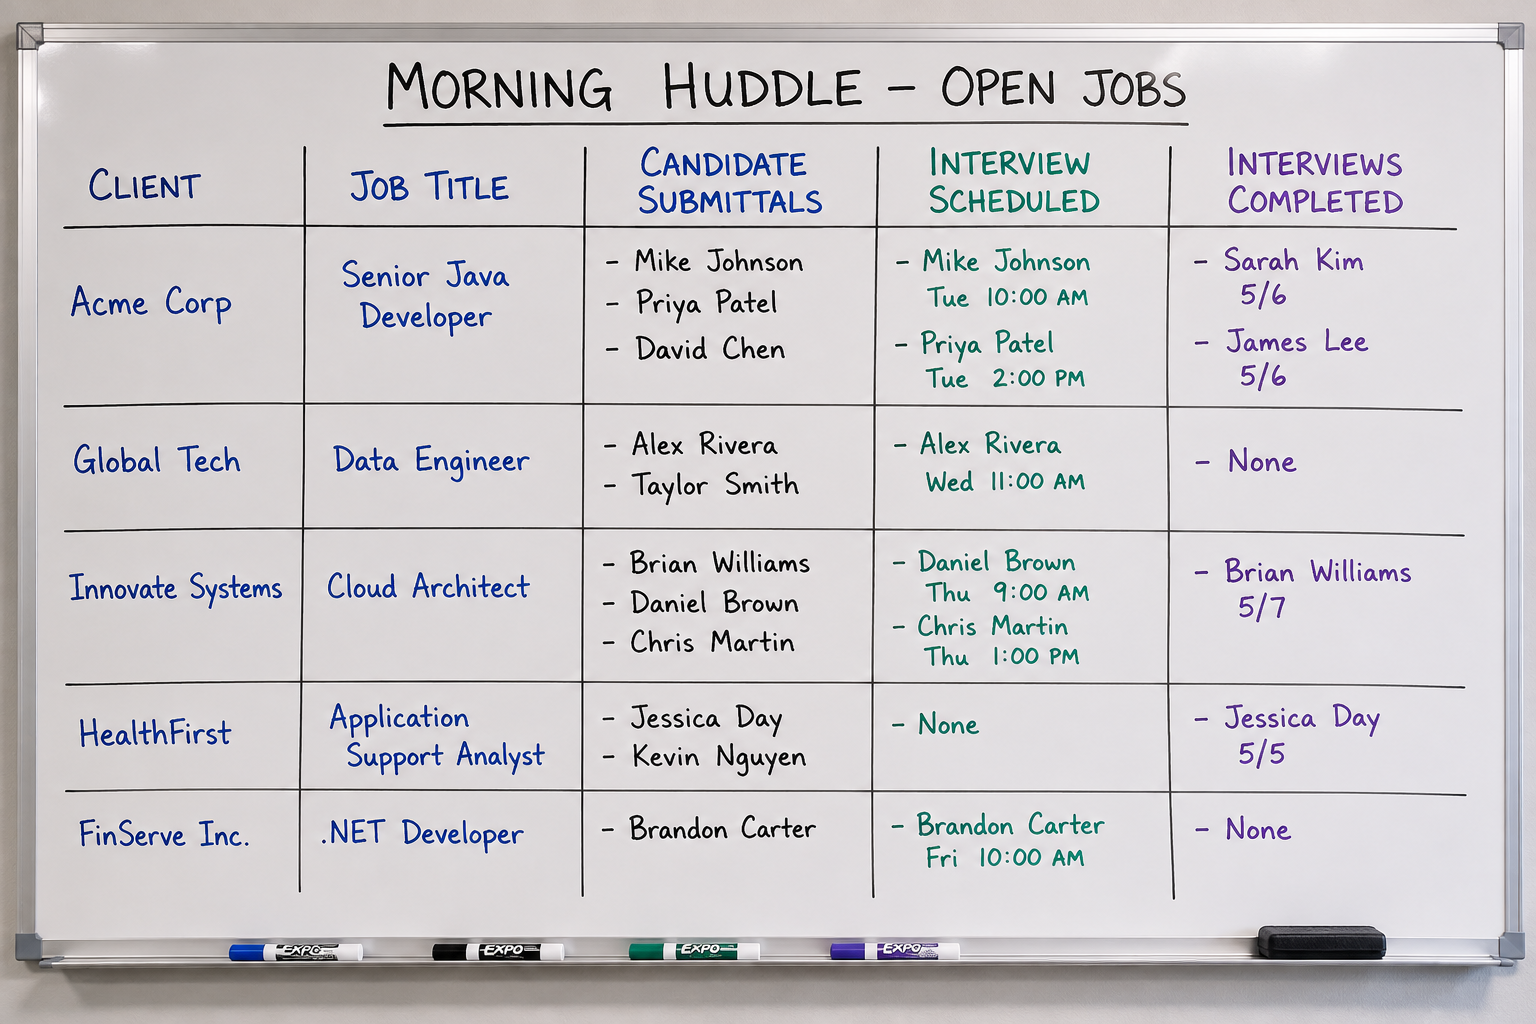 MORNING HUDDLE – OPEN JOBS
CLIENT
JOB TITLE
CANDIDATE
SUBMITTALS
INTERVIEW
SCHEDULED
INTERVIEWS
COMPLETED
Acme Corp
Senior Java
Developer
- Mike Johnson
- Priya Patel
- David Chen
- Mike Johnson
Tue 10:00 AM
- Priya Patel
Tue 2:00 PM
- Sarah Kim
5/6
- James Lee
5/6
Global Tech
Data Engineer
- Alex Rivera
- Taylor Smith
- Alex Rivera
Wed 11:00 AM
- None
Innovate Systems
Cloud Architect
- Brian Williams
- Daniel Brown
- Chris Martin
- Daniel Brown
Thu 9:00 AM
- Chris Martin
Thu 1:00 PM
- Brian Williams
5/7
HealthFirst
Application
Support Analyst
- Jessica Day
- Kevin Nguyen
- None
- Jessica Day
5/5
FinServe Inc.
.NET Developer
- Brandon Carter
- Brandon Carter
Fri 10:00 AM
- None
EXPO
EXPO
EXPO
EXPO